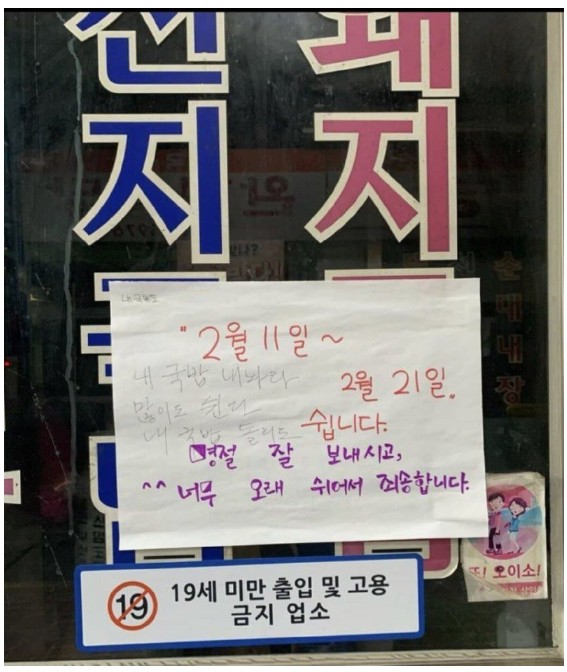 선지
돼지
순대내장
내 국밥도
"2월 11일 ~
2월 21일.
쉽니다.
내 국밥 내놔라
많이도 쉰다
내 국밥 돌리도
명절 잘 보내시고,
^^ 너무 오래 쉬어서 죄송합니다.
또! 오이소!
19
19세 미만 출입 및 고용
금지 업소